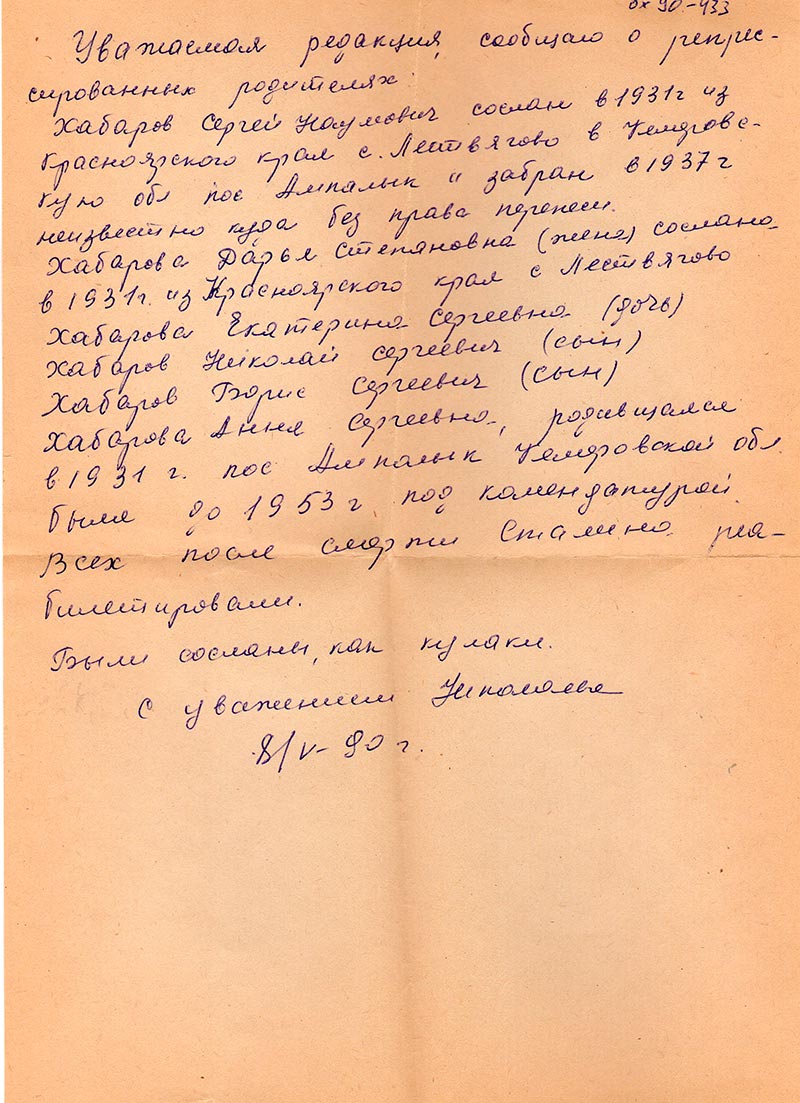 вх 90-433
Уважаемая редакция, сообщаю о репрес-
сированных родителях.
Хабаров Сергей Наумович сослан в 1931г из
Красноярского края с. Лествягово в Кемеровс-
кую обл пос Ампалык и забран в 1937 г
неизвестно куда без права переписи.
Хабарова Дарья Степановна (жена) сослана
в 1931г. из Красноярского края с Лествягово
Хабарова Екатерина Сергеевна (дочь)
Хабаров Николай Сергеевич (сын)
Хабаров Борис Сергеевич (сын)
Хабарова Анна Сергеевна, родившаяся
в 1931 г. пос Ампалык Кемеровской обл.
были до 1953 г под комендатурой.
Всех после смерти Сталина реа-
билетировали.
Были сосланы, как кулаки.
С уважением Николаева
8/V-90 г.